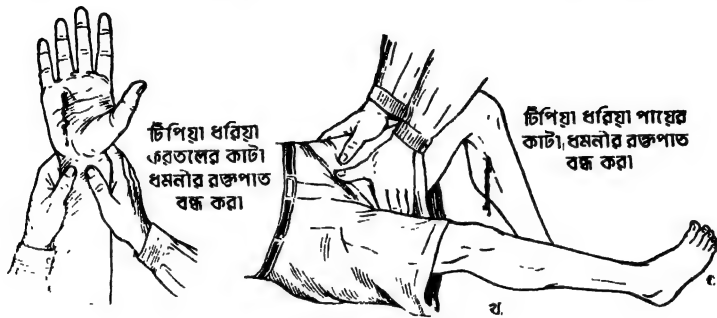 টিপিয়া ধরিয়া
করতলের কাটা
ধমনীর রক্তপাত
বন্ধ করা
টিপিয়া ধরিয়া পায়ের
কাটা ধমনীর রক্তপাত
বন্ধ করা
খ.